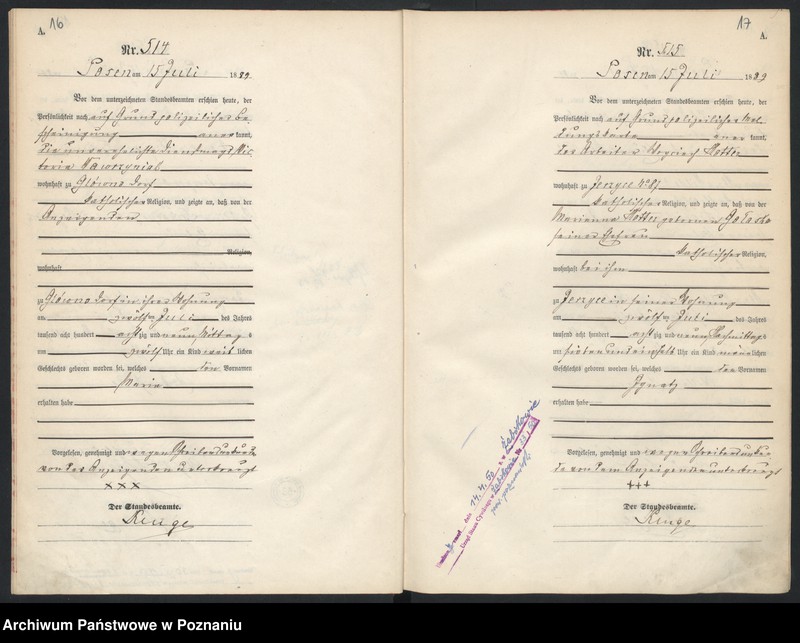 16
A.
Nr. 514
Posen am 15 Juli 1889
Vor dem unterzeichneten Standesbeamten erschien heute, der
Persönlichkeit nach auf Grund polizeilicher Be-
scheinigung anerkannt,
die unverehelichte Dienstmagd Vic-
toria Kawczynial
wohnhaft zu Główno Dorf
katholischer Religion, und zeigte an, daß von der
Anzeigenden
Religion,
wohnhaft
zu Główno Dorf in ihrer Wohnung
am zwölften Juli des Jahres
tausend acht hundert achtzig und neun Mittags
um zwölf Uhr ein Kind weiblichen
Geschlechts geboren worden sei, welches den Vornamen
Maria
erhalten habe
Vorgelesen, genehmigt und wegen Schreibensunkunde
von der Anzeigenden unterkreuzt
XXX
Der Standesbeamte.
17
A.
Nr. 515
Posen am 15 Juli 1889
Vor dem unterzeichneten Standesbeamten erschien heute, der
Persönlichkeit nach auf Grund polizeilicher Mel-
dungskarte anerkannt,
der Arbeiter
wohnhaft zu Jerzyce No 81
katholischer Religion, und zeigte an, daß von der
Marianna geborenen
seiner Ehefrau
katholischer Religion,
wohnhaft bei ihm
zu Jerzyce in seiner Wohnung
am zwölften Juli des Jahres
tausend acht hundert achtzig und neun Nachmittags
um sieben und einhalb Uhr ein Kind männlichen
Geschlechts geboren worden sei, welches den Vornamen
Ignatz
erhalten habe
Vorgelesen, genehmigt und wegen Schreibensunkun-
de von dem Anzeigenden unterkreuzt
+++
Der Standesbeamte.
14.4.50
Żabikowie
Urząd Stanu Cywilnego
Archiwum Państwowe w Poznaniu